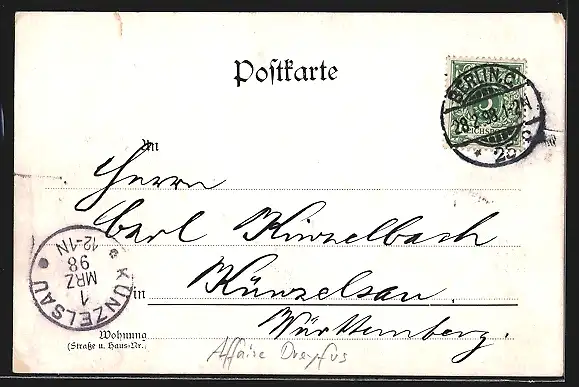 Postkarte
BERLIN C.
28.2.98.1-2N
* 25 c
REICHSPOST
5
An
Herrn
Carl Künzelbach
in Künzelsau.
Württemberg.
Wohnung
(Straße u. Haus-Nr.)
KÜNZELSAU
1
MRZ
98
12-1N
Affaire Dreyfus